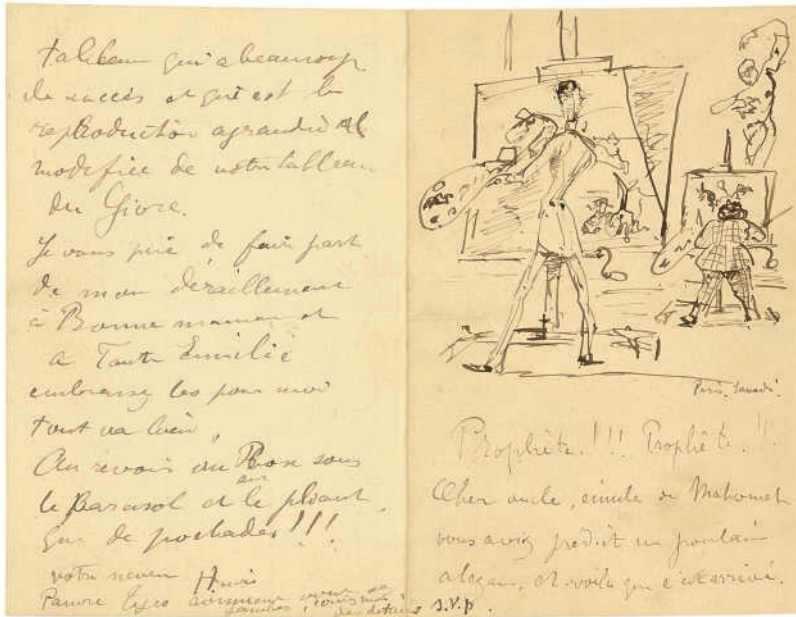 tableau qui a beaucoup
de succès et qui est la
reproduction agrandie et
modifiée de votre tableau
du Givre.
Je vous prie de faire part
de mon déraillement
à Bonne maman et
à Tante Emilie
embrassez les pour moi
tout va bien,
Au revoir au Bosc sous
le parasol et sur le pliant,
que de pochades!!!
votre neveu Henri
Pauvre Tyro
des détails S.V.P.
Paris, Samedi.
Prophète!!! Prophète!!
Cher oncle, émule de Mahomet
vous aviez prédit un poulain
alezan, et voilà que c'est arrivé.